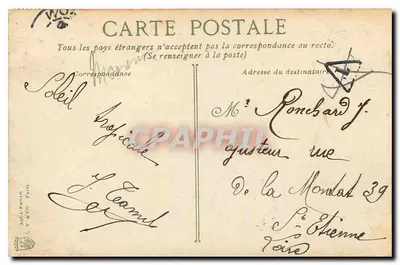 CARTE POSTALE
Tous les pays étrangers n'acceptent pas la correspondance au recto.
(Se renseigner à la poste)
Correspondance
Adresse du destinataire
T
Soleil
tropicale
Mr Ronchard J.
ajusteur rue
de la Montat 39
St Etienne
Loire
CPAPHIL